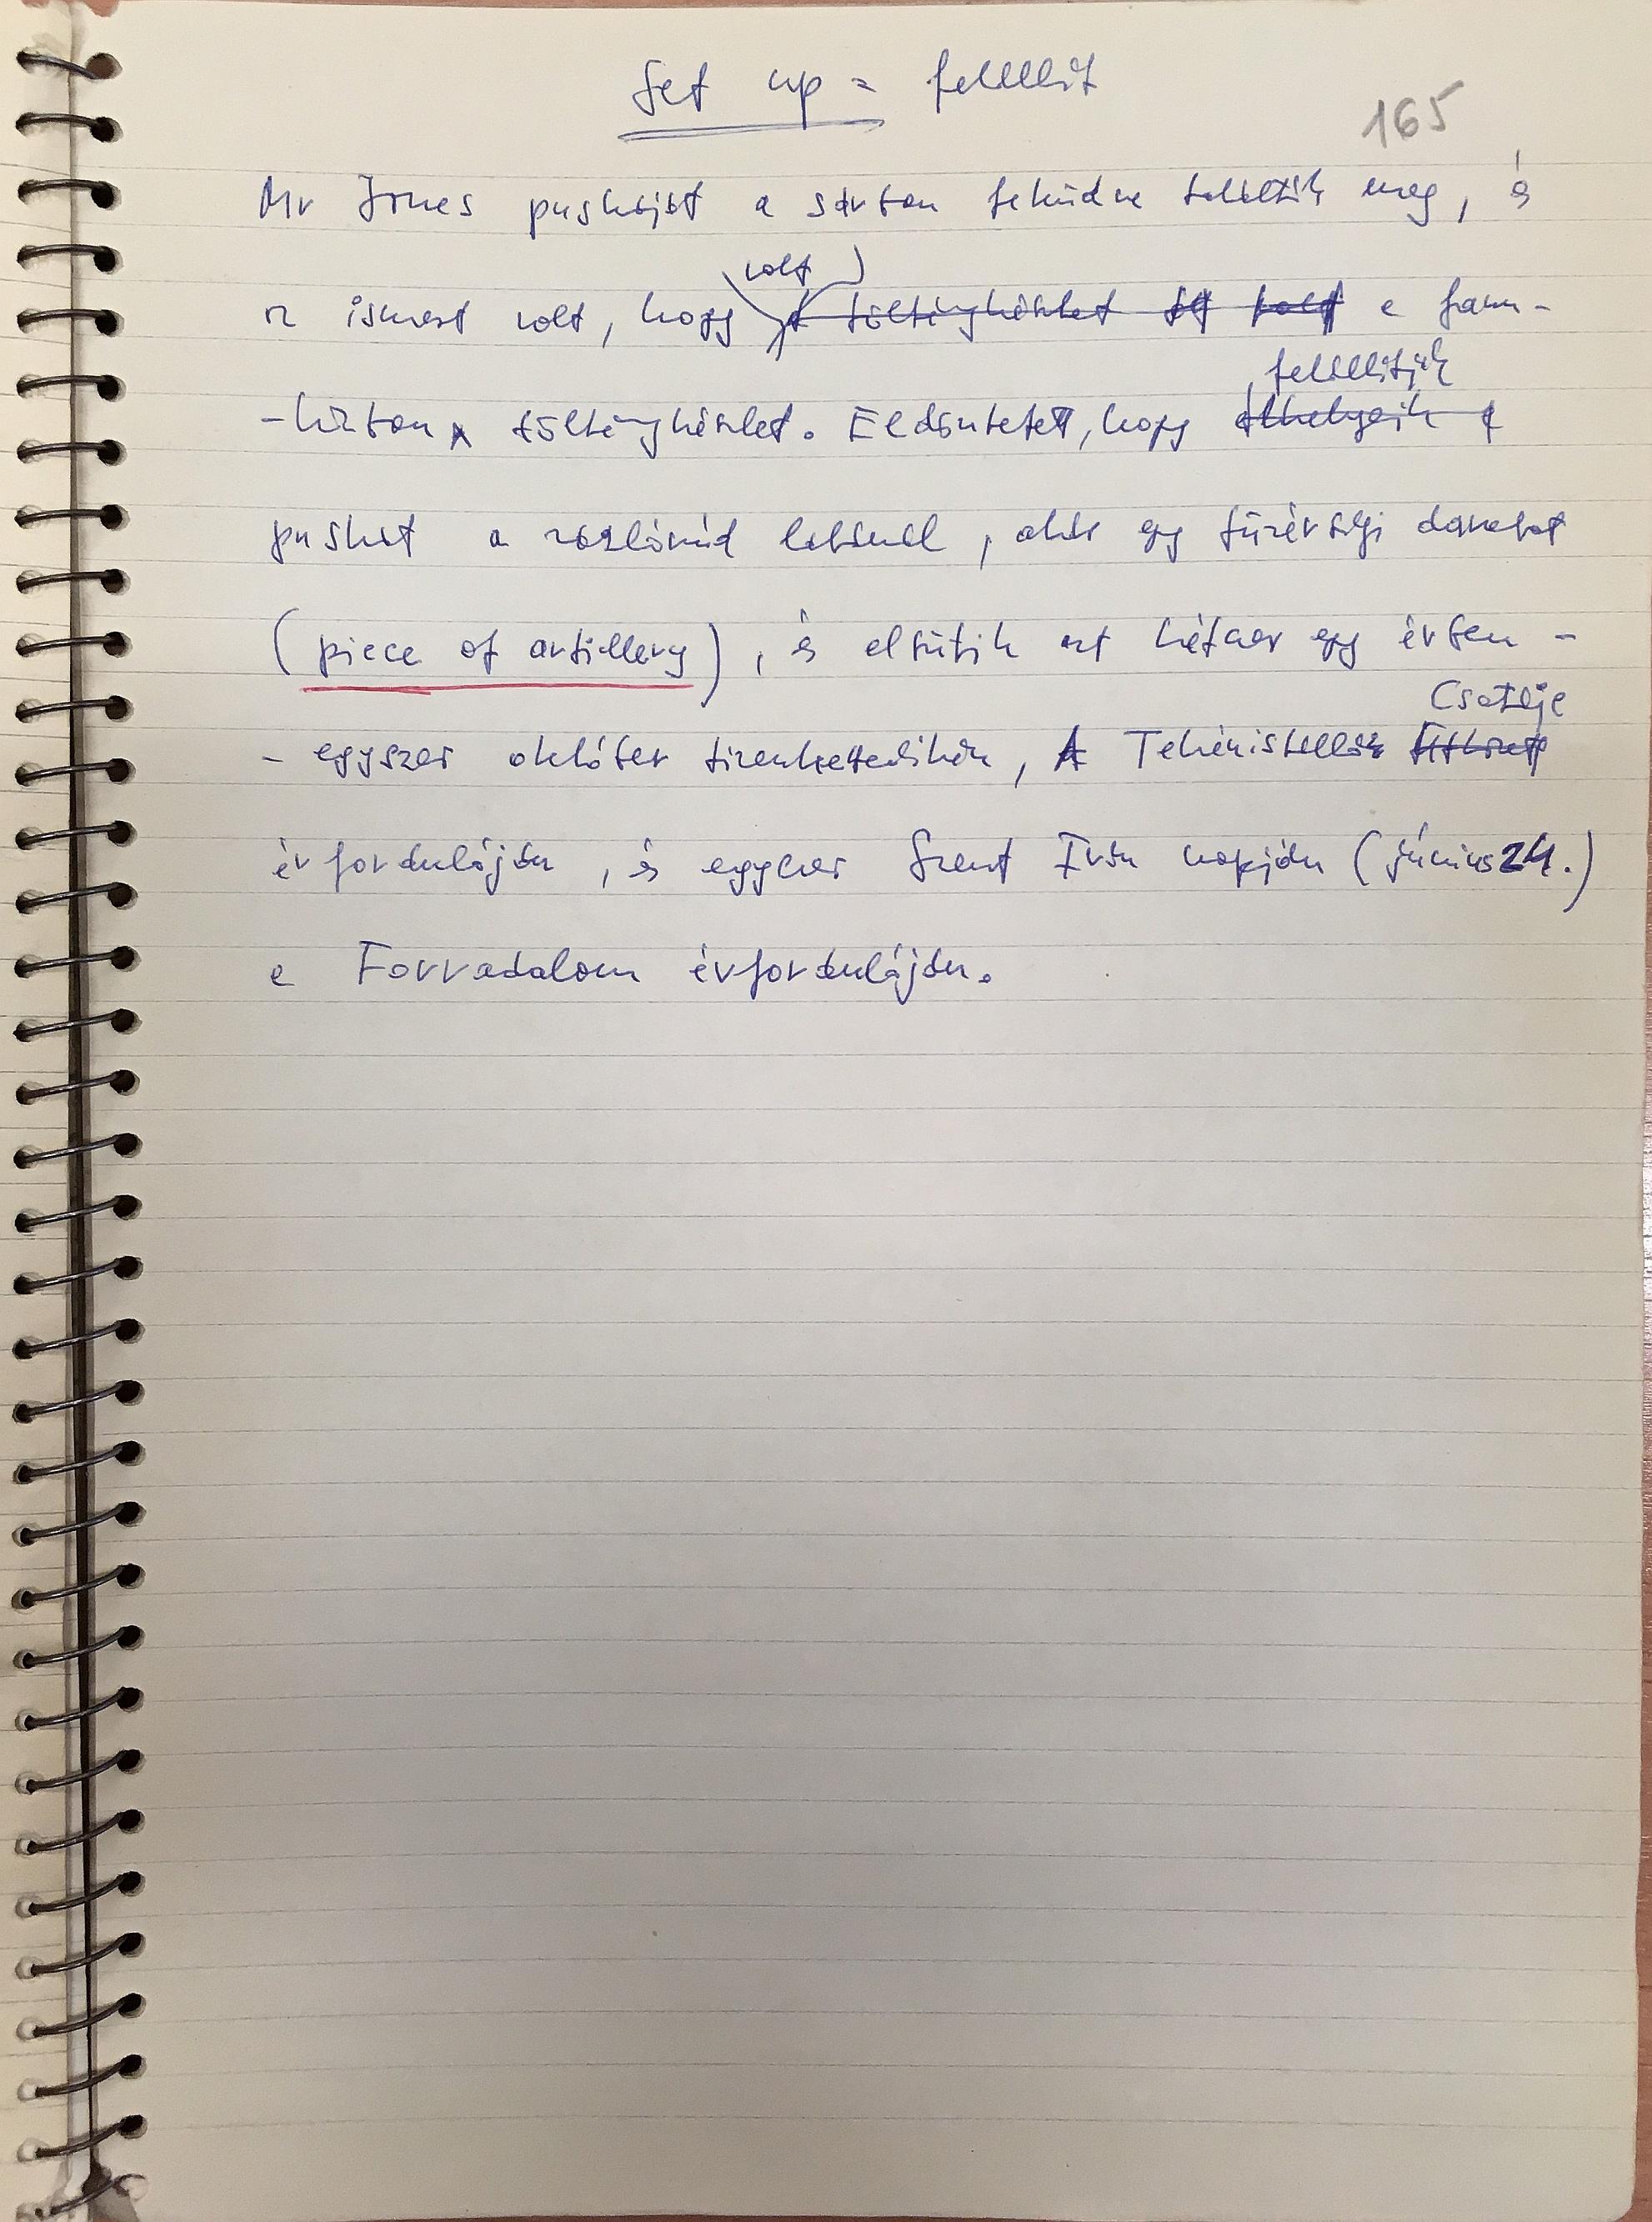 Set up = felállít
165
Mr Jones puskáját a sárban feküdve találták meg, és
az ismert volt, hogy volt a tölténykészlet ott volt a farm-
-házban tölténykészlet. Eldöntetett, hogy felállítják elhelyezik a
puskát a zászlórúd lábánál, akár egy tüzérségi darabot
(piece of artillery), és elsütik azt kétszer egy évben -
- egyszer október tizenkettedikén, A Tehénistálló Csatája
évfordulóján, és egyszer Szent Iván napján (június 24.)
a Forradalom évfordulóján.